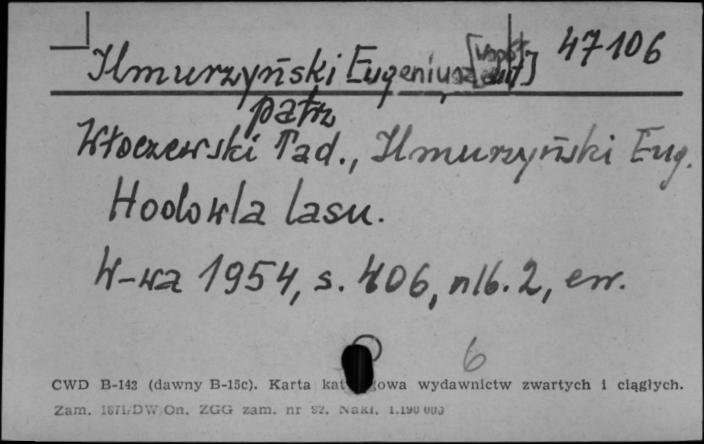 Ilmurzyński Eugeniusz [współ. aut] 47106
patrz
Włoczewski Tad., Ilmurzyński Eug.
Hodowla lasu.
W-wa 1954, s. 406, nlb. 2, err.
6
CWD B-143 (dawny B-15c). Karta katalogowa wydawnictw zwartych i ciągłych.
Zam. 1871/DW/On. ZGG zam. nr 92. Nakł. 1.190 000